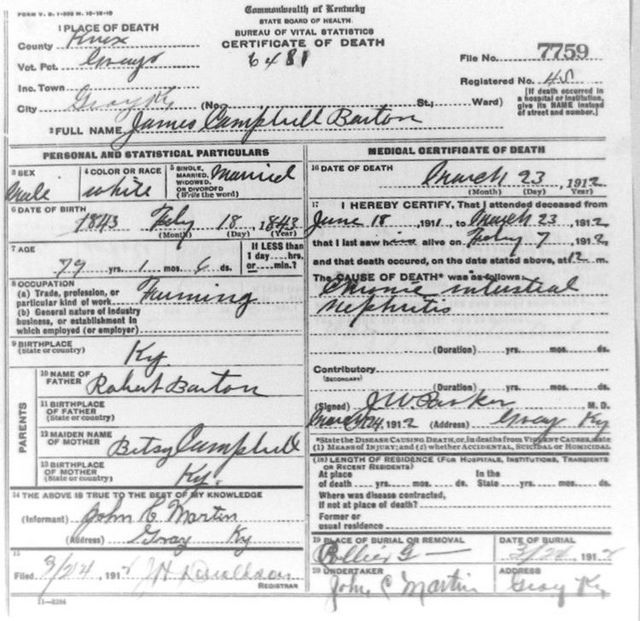 FORM V. S. 1-
Commonwealth of Kentucky
STATE BOARD OF HEALTH
BUREAU OF VITAL STATISTICS
CERTIFICATE OF DEATH
1 PLACE OF DEATH
County Knox
Vot. Pct. Grays
Inc. Town
City Gray Ky (No. St.; Ward)
6481
File No. 7759
Registered No.
[If death occurred in a hospital or institution, give its NAME instead of street and number.]
2 FULL NAME James Campbell Barton
PERSONAL AND STATISTICAL PARTICULARS
3 SEX Male
4 COLOR OR RACE white
5 SINGLE, MARRIED, WIDOWED, OR DIVORCED (Write the word) Married
6 DATE OF BIRTH
1843 Feby 18, 1843
(Month) (Day) (Year)
7 AGE
79 yrs. 1 mos. 6 ds.
If LESS than 1 day.... hrs. or.... min.?
8 OCCUPATION
(a) Trade, profession, or particular kind of work Farming
(b) General nature of industry business, or establishment in which employed (or employer)
9 BIRTHPLACE (State or country) Ky
PARENTS
10 NAME OF FATHER Robert Barton
11 BIRTHPLACE OF FATHER (State or country)
12 MAIDEN NAME OF MOTHER Betsy Campbell
13 BIRTHPLACE OF MOTHER (State or country) Ky.
14 THE ABOVE IS TRUE TO THE BEST OF MY KNOWLEDGE
(Informant) John C Martin
(Address) Gray Ky
15
Filed 3/24, 191
REGISTRAR
11-3284
MEDICAL CERTIFICATE OF DEATH
16 DATE OF DEATH
March 23, 1912
(Month) (Day) (Year)
17 I HEREBY CERTIFY, That I attended deceased from
June 18, 1911, to March 23, 1912,
that I last saw him alive on Feby 7, 1912,
and that death occured, on the date stated above, at 12 m.
The CAUSE OF DEATH* was as follows:
Chronic intestial
nephritis
(Duration) yrs. mos. ds.
Contributory
(SECONDARY)
(Duration) yrs. mos. ds.
(Signed) J W Parker M. D.
March 24, 1912 (Address) Gray Ky
*State the DISEASE CAUSING DEATH, or, in deaths from VIOLENT CAUSES, state (1) MEANS OF INJURY; and (2) whether ACCIDENTAL, SUICIDAL or HOMICIDAL
(18) LENGTH OF RESIDENCE (FOR HOSPITALS, INSTITUTIONS, TRANSIENTS OR RECENT RESIDENTS)
At place of death yrs. mos. ds. In the State yrs. mos. ds.
Where was disease contracted,
if not at place of death?
Former or
usual residence
19 PLACE OF BURIAL OR REMOVAL
DATE OF BURIAL
3/24, 191
20 UNDERTAKER
John C Martin
ADDRESS
Gray Ky